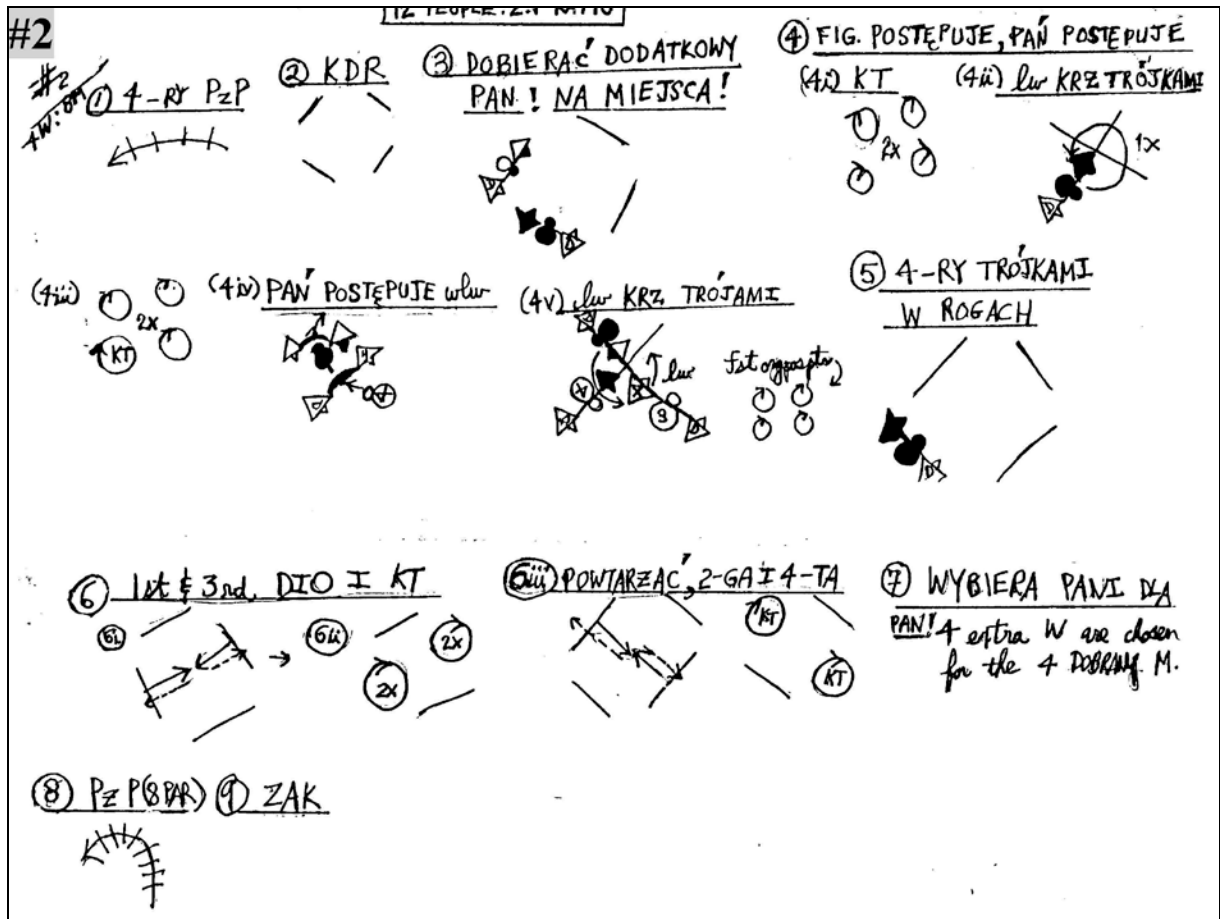 #2
12 PEOPLE: 2:1 RATIO
#2
4W: 8M
① 4-RY PzP
② KDR
③ DOBIERAĆ DODATKOWY
PAN! NA MIEJSCA!
④ FIG. POSTĘPUJE, PAŃ POSTĘPUJE
(4i) KT
2x
(4ii) lw KRZ TRÓJKAMI
1x
D
(4iii)
2x
KT
(4iv) PAŃ POSTĘPUJE wlw
D
(4v) lw KRZ TRÓJAMI
lw
⑤ 4-RY TRÓJKAMI
W ROGACH
D
⑥ 1st & 3rd, DIO I KT
6i
6ii
2x
2x
6iii POWTARZAĆ, 2-GA I 4-TA
KT
KT
⑦ WYBIERA PANI DLA
PAN! 4 extra W are chosen
for the 4 DOBRANY M.
⑧ Pz P(8 PAR) ⑨ ZAK